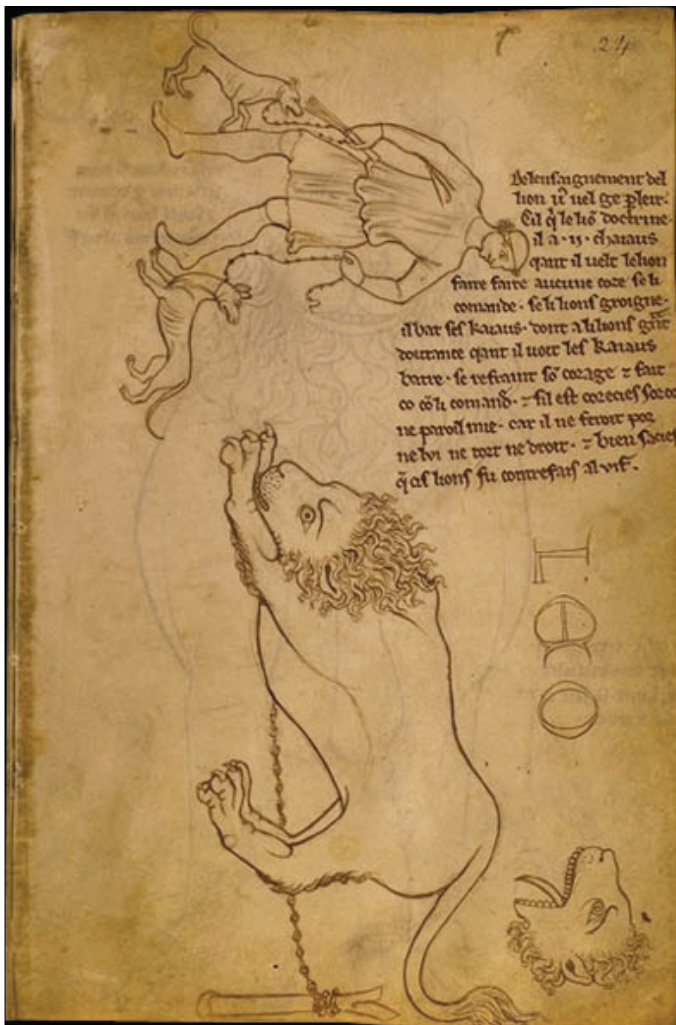 24
De lensaignement del
lion vos vel ge pleir.
Cil qi le lion doctrine.
il a · ii · chaiaus
qant il uelt le lion
faire faire aucune coze se li
comande · se li lions groigne ·
il bat ses kaiaus · dont a li lions grant
doutance qant il uoit les kaiaus
batre · se refraint son corage et fait
co con li comande · et sil est coreciés sor co
ne paroil mie · car il ne feroit por
nelui ne tort ne droit · et bien sacies
qe cis lions fu contrefais al vif ·
LEO